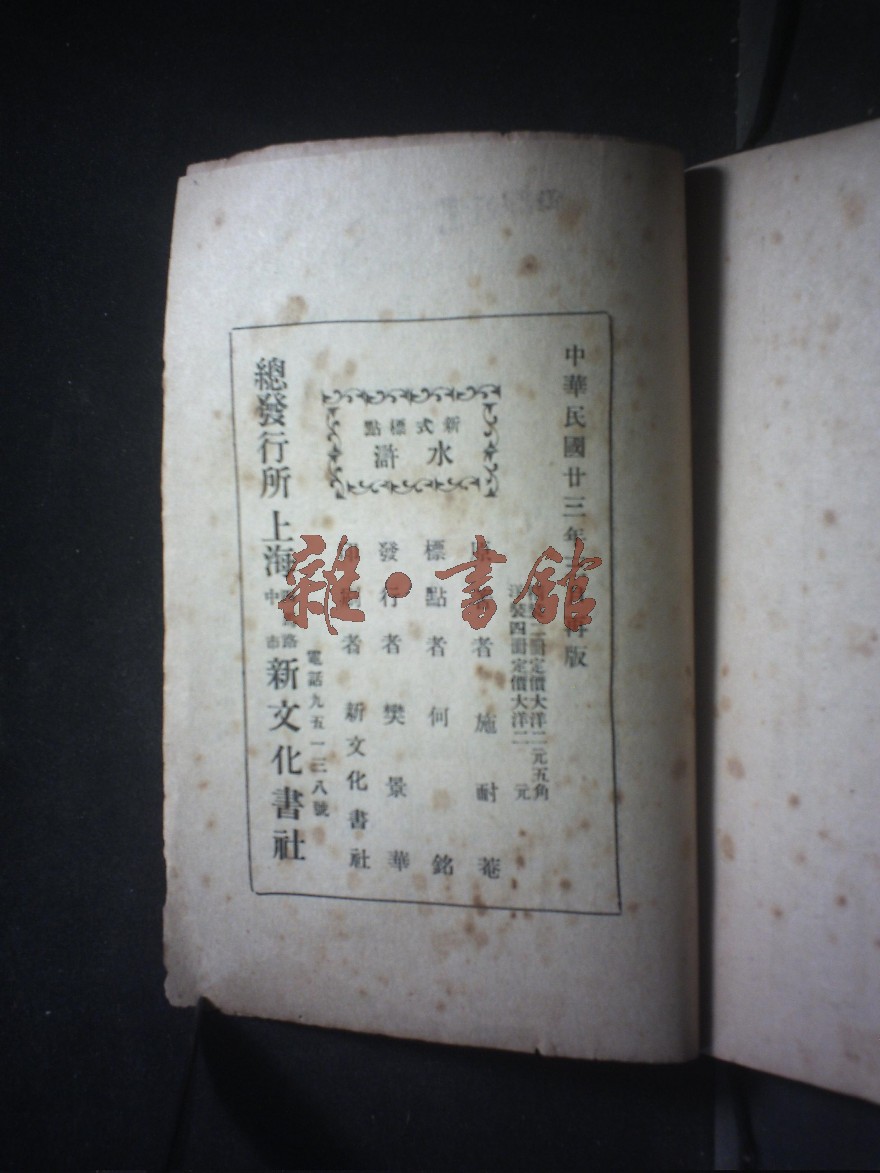 中華民國廿三年三月再版
洋裝二冊定價大洋二元五角
洋裝四冊定價大洋二元
新式標點
水滸
者施耐菴
標點者何銘
發行者樊景華
印刷者新文化書社
總發行所上海中市路新文化書社
電話九五一三八號
雜·書館